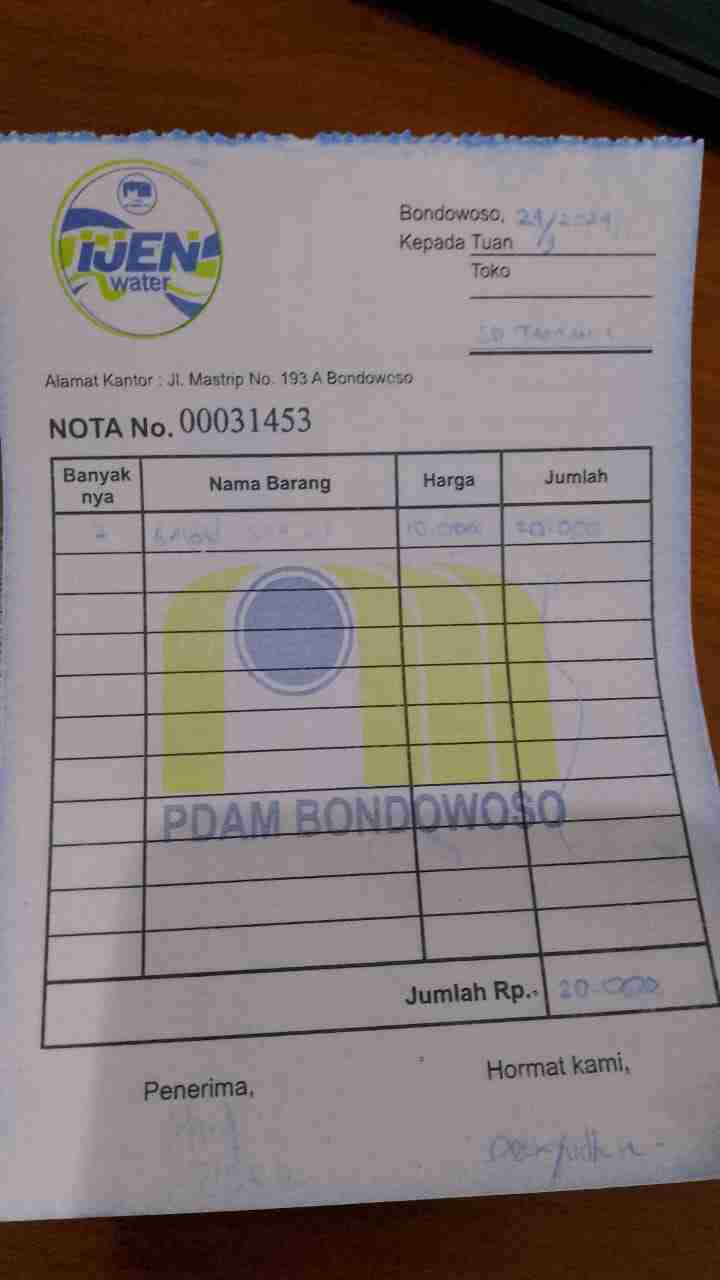 IJEN
water
Bondowoso, 24/2024
Kepada Tuan
Toko
SD
Alamat Kantor : Jl. Mastrip No. 193 A Bondowoso
NOTA No. 00031453
Banyak nya Nama Barang Harga Jumlah
2 10.000 20.000
PDAM BONDOWOSO
Jumlah Rp.- 20.000
Penerima, Hormat kami,